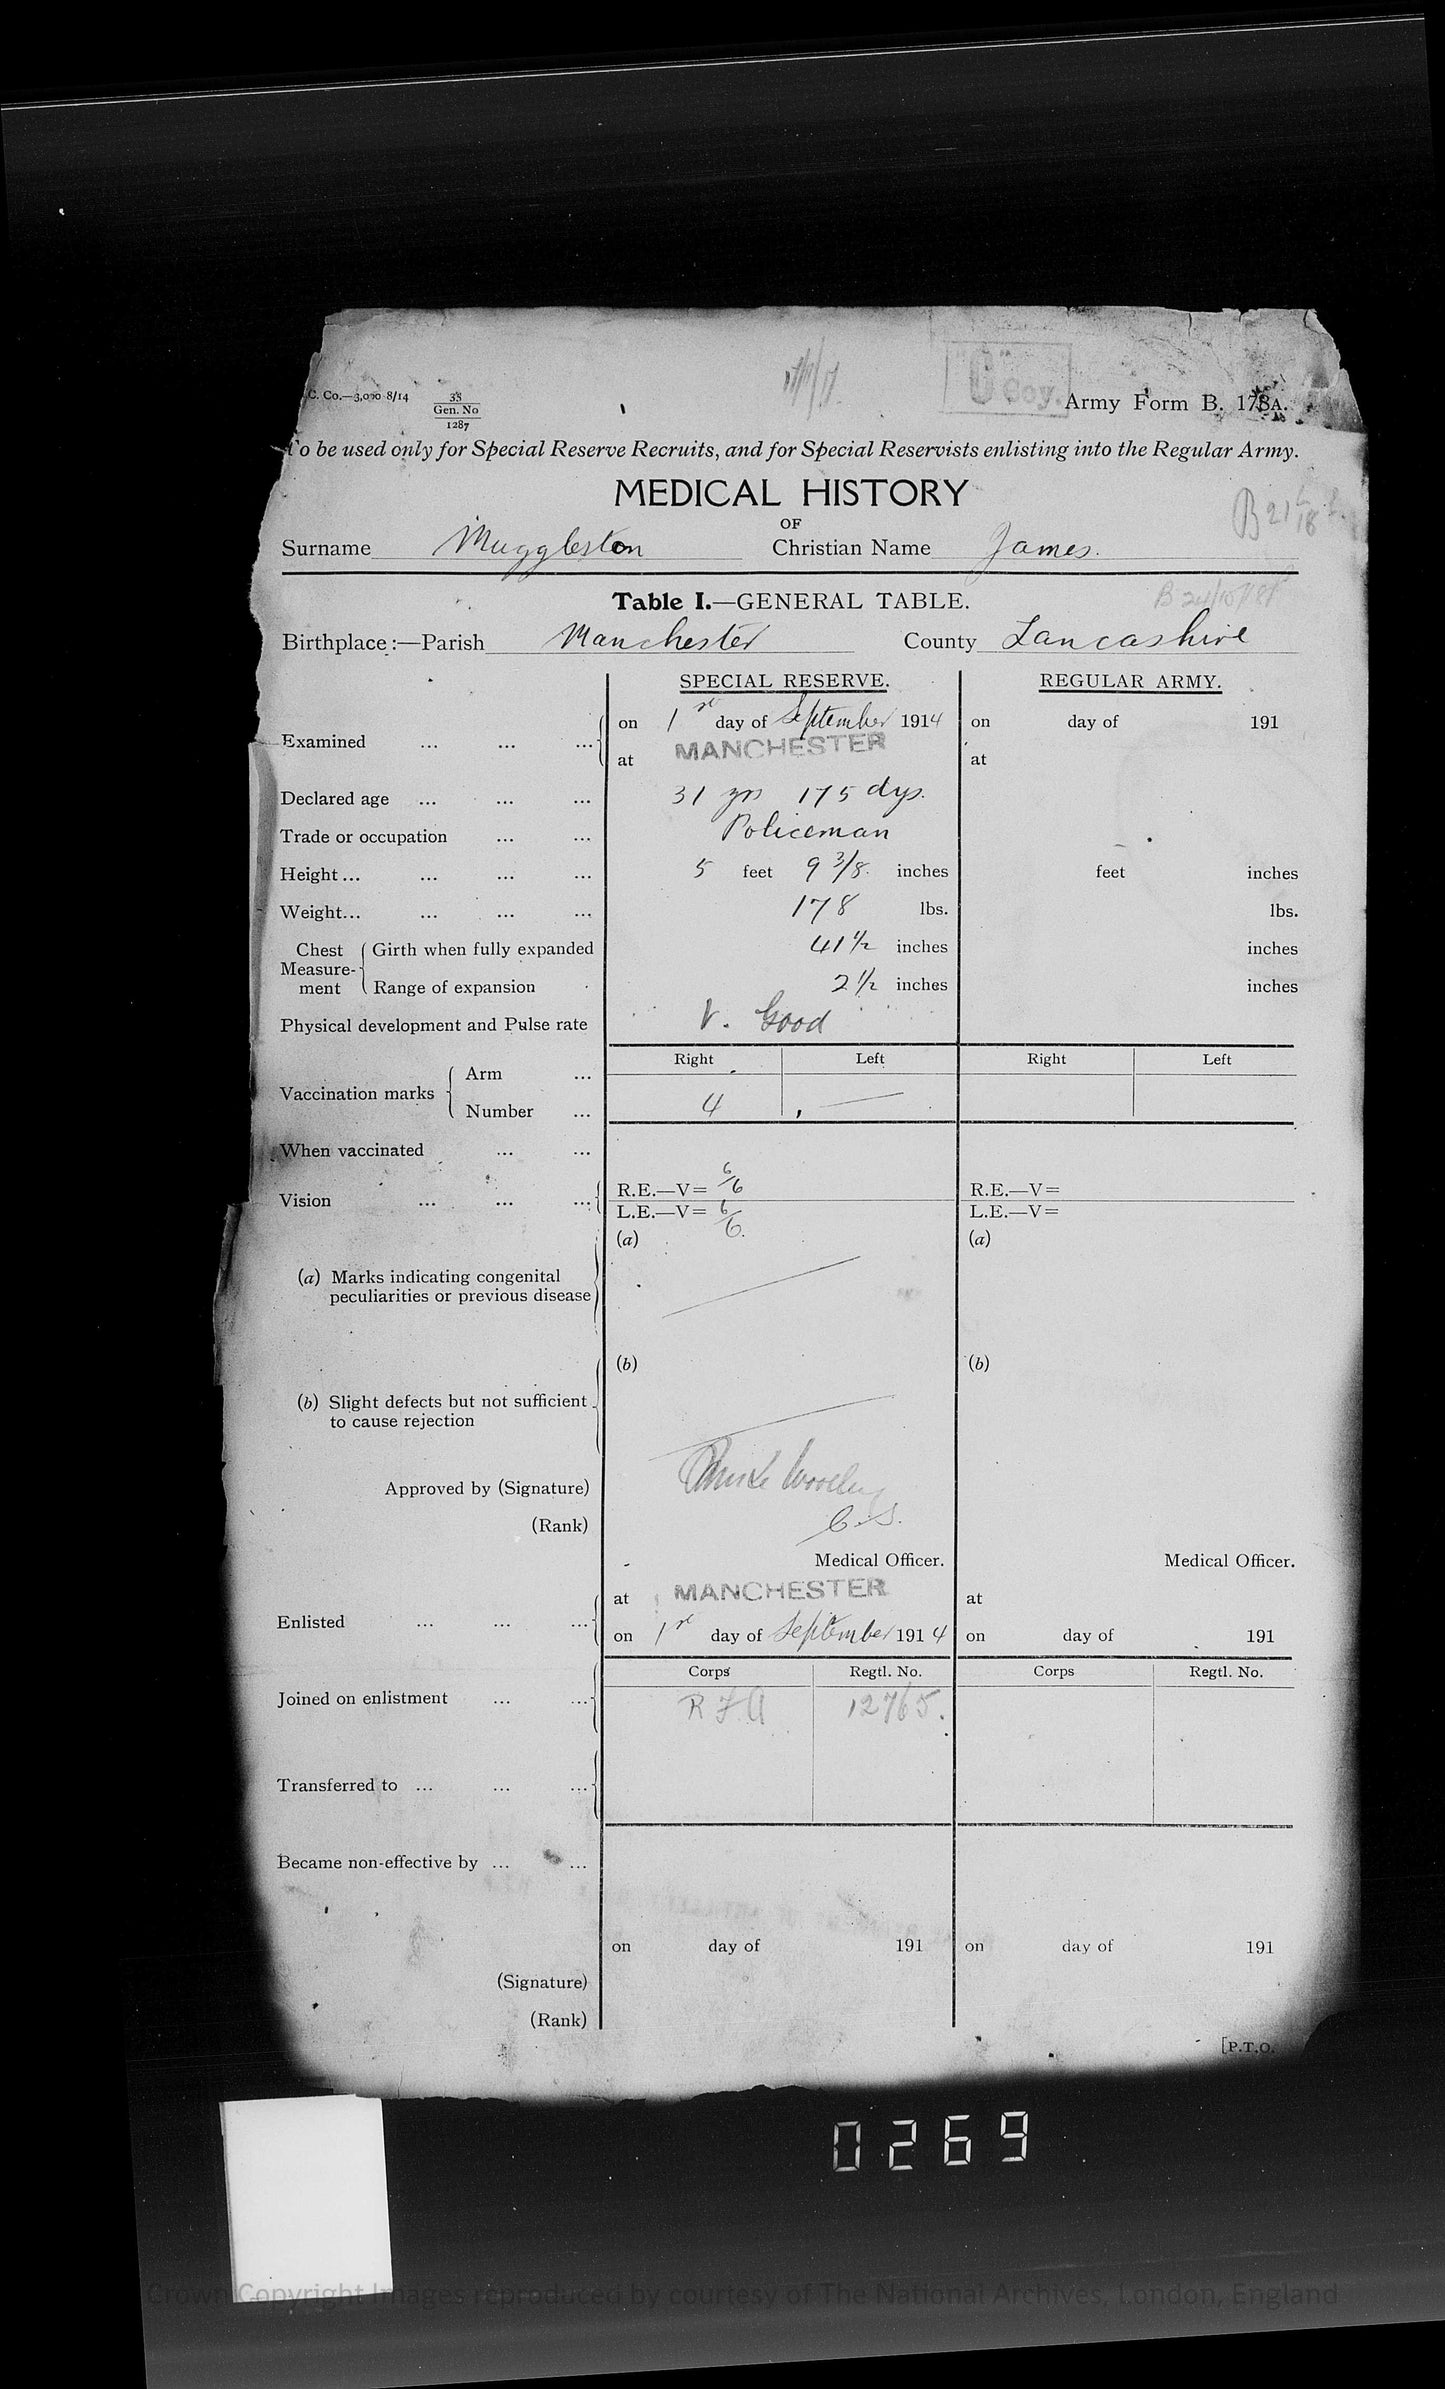 C. Co.—3,000 8/14 38
Gen. No
1287
"C" Coy.
Army Form B. 178A.
To be used only for Special Reserve Recruits, and for Special Reservists enlisting into the Regular Army.
MEDICAL HISTORY
OF
Surname Muggleston Christian Name James.
Table I.—GENERAL TABLE.
Birthplace:—Parish Manchester County Lancashire
SPECIAL RESERVE. REGULAR ARMY.
on 1st day of September 1914 on day of 191
Examined ... ... ...
at MANCHESTER at
Declared age ... ... ... 31 yrs 175 dys.
Trade or occupation ... ... Policeman
Height ... ... ... ... 5 feet 9 3/8 inches feet inches
Weight... ... ... ... 178 lbs. lbs.
Chest Measurement Girth when fully expanded 41 1/2 inches inches
Range of expansion 2 1/2 inches inches
Physical development and Pulse rate V. Good
Right Left Right Left
Vaccination marks Arm ...
Number ... 4 —
When vaccinated ... ...
Vision ... ... ... R.E.—V= 6/6 R.E.—V=
L.E.—V= 6/6. L.E.—V=
(a) (a)
(a) Marks indicating congenital
peculiarities or previous disease
(b) (b)
(b) Slight defects but not sufficient
to cause rejection
Approved by (Signature)
(Rank) C.S.
Medical Officer. Medical Officer.
at MANCHESTER at
Enlisted ... ... ...
on 1st day of September 1914 on day of 191
Corps Regtl. No. Corps Regtl. No.
Joined on enlistment ... ... R F A 12765.
Transferred to ... ... ...
Became non-effective by ... ...
on day of 191 on day of 191
(Signature)
(Rank)
[P.T.O.
0269
Crown Copyright Images reproduced by courtesy of The National Archives, London, England